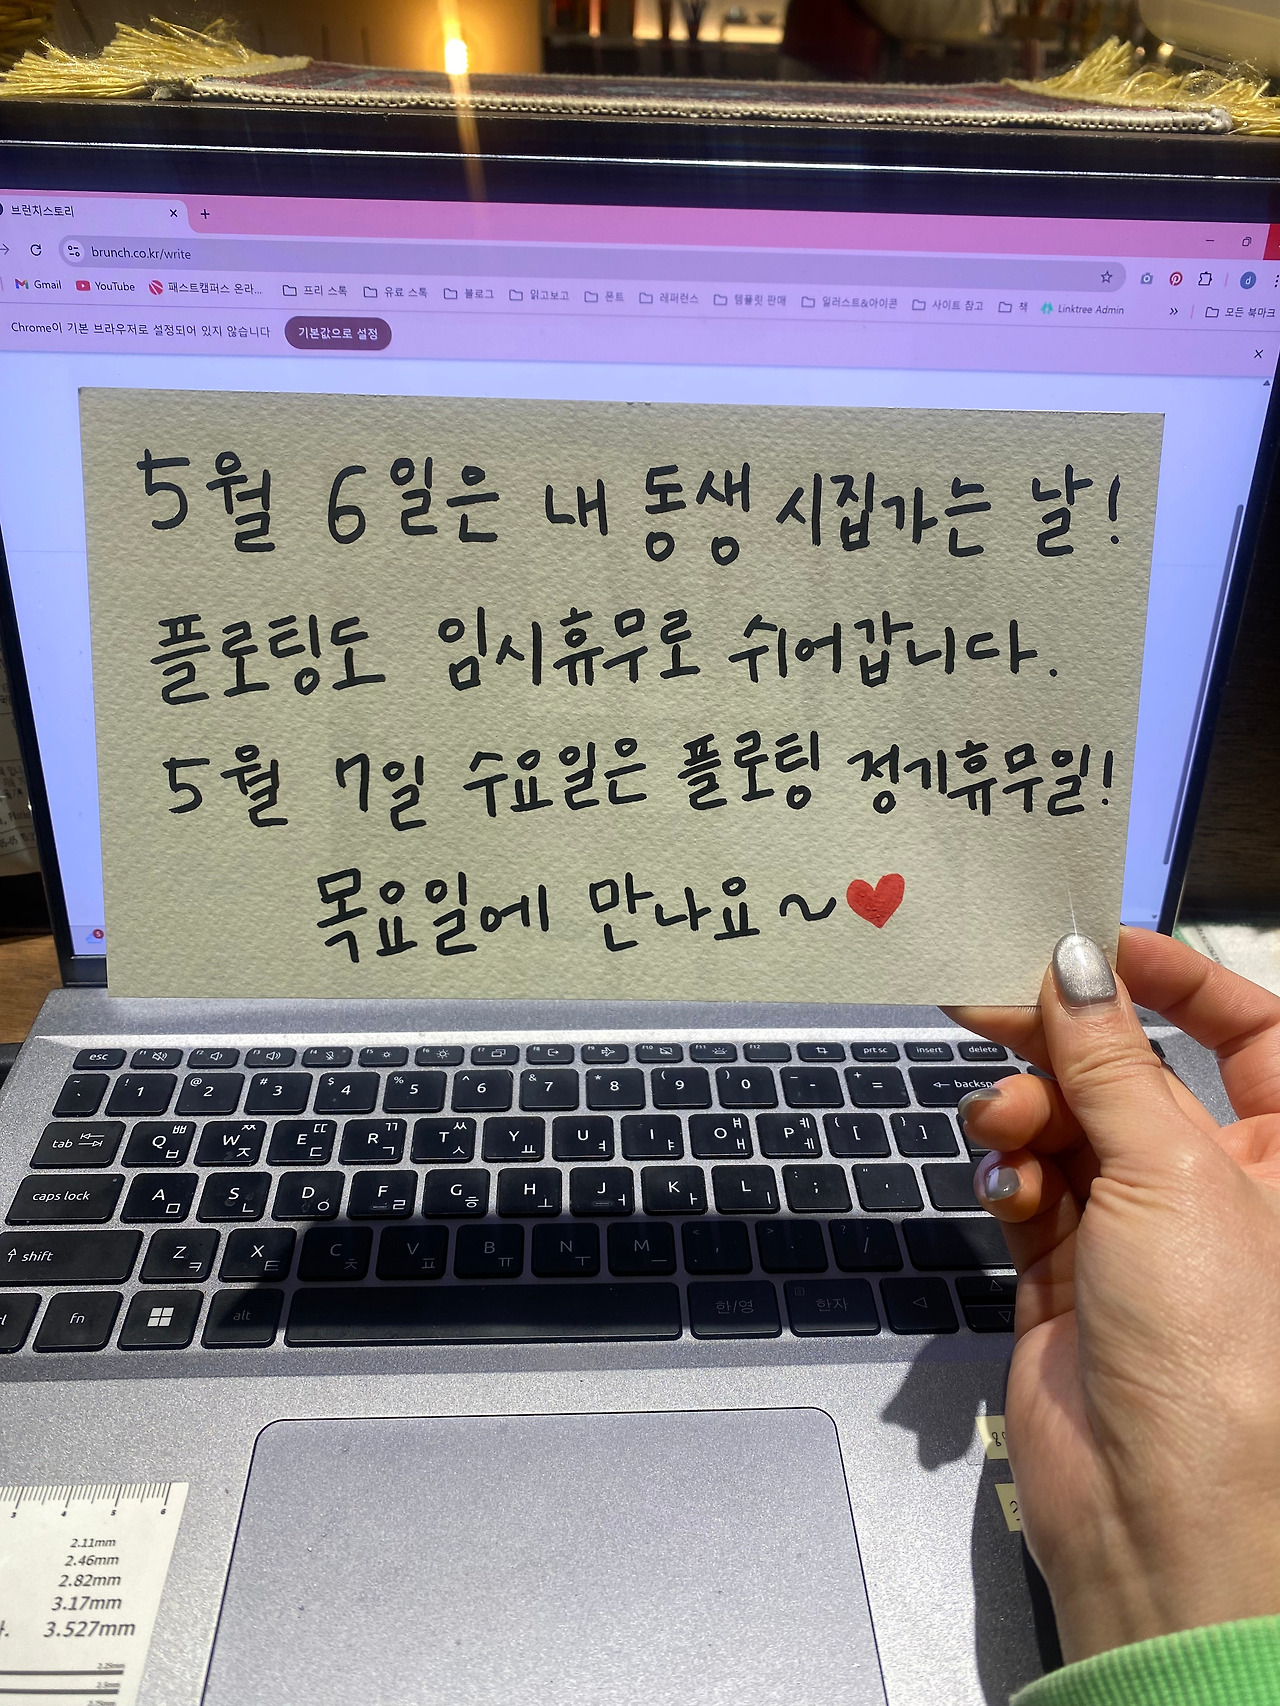 브런치스토리
brunch.co.kr/write
Gmail YouTube 패스트캠퍼스 온라... 프리 스톡 유료 스톡 블로그 읽고보고 폰트 레퍼런스 템플릿 판매 일러스트&아이콘 사이트 참고 책 Linktree Admin » 모든 북마크
Chrome이 기본 브라우저로 설정되어 있지 않습니다 기본값으로 설정
5월 6일은 내 동생 시집가는 날!
플로팅도 임시휴무로 쉬어갑니다.
5월 7일 수요일은 플로팅 정기휴무일!
목요일에 만나요~♥
esc f1 f2 f3 f4 f5 f6 f7 f8 f9 f10 f11 f12 prt sc insert delete
~ ` ! 1 @ 2 # 3 $ 4 % 5 ^ 6 & 7 * 8 ( 9 ) 0 - + = backsp
tab Q ㅃ ㅂ W ㅉ ㅈ E ㄸ ㄷ R ㄲ ㄱ T ㅆ ㅅ Y ㅛ U ㅕ I ㅑ O ㅒ ㅐ P ㅖ ㅔ { [ } ]
caps lock A ㅁ S ㄴ D ㅇ F ㄹ G ㅎ H ㅗ J ㅓ K ㅏ L ㅣ : ; " '
shift Z ㅋ X ㅌ C ㅊ V ㅍ B ㅠ N ㅜ M ㅡ < , > . ? /
fn alt 한/영 한자
3 4 5 6
2.11mm
2.46mm
2.82mm
3.17mm
3.527mm
2.25mm
2.5mm
2.75mm